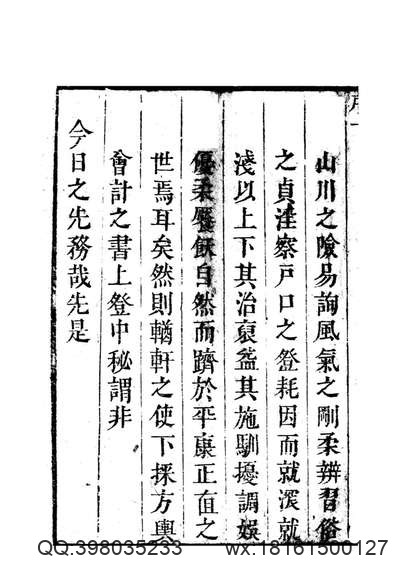 山川之險易詢風氣之剛柔辨習俗
之貞淫察戶口之登耗因而就深就
淺以上下其治裒益其施馴擾調娛
優柔饜飫自然而躋於平康正直之
世焉耳矣然則輶軒之使下採方輿
會計之書上登中秘謂非
今日之先務哉先是
QQ.398035233 wx:18161500127